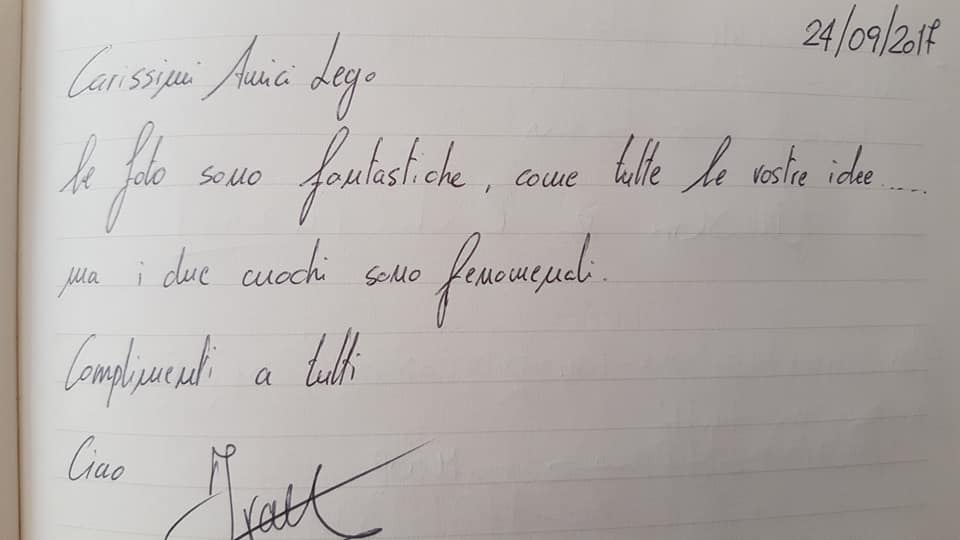 24/09/2017
Carissimi Amici Lego
le foto sono fantastiche, come tutte le vostre idee.....
ma i due cuochi sono fenomenali.
Complimenti a tutti
Ciao